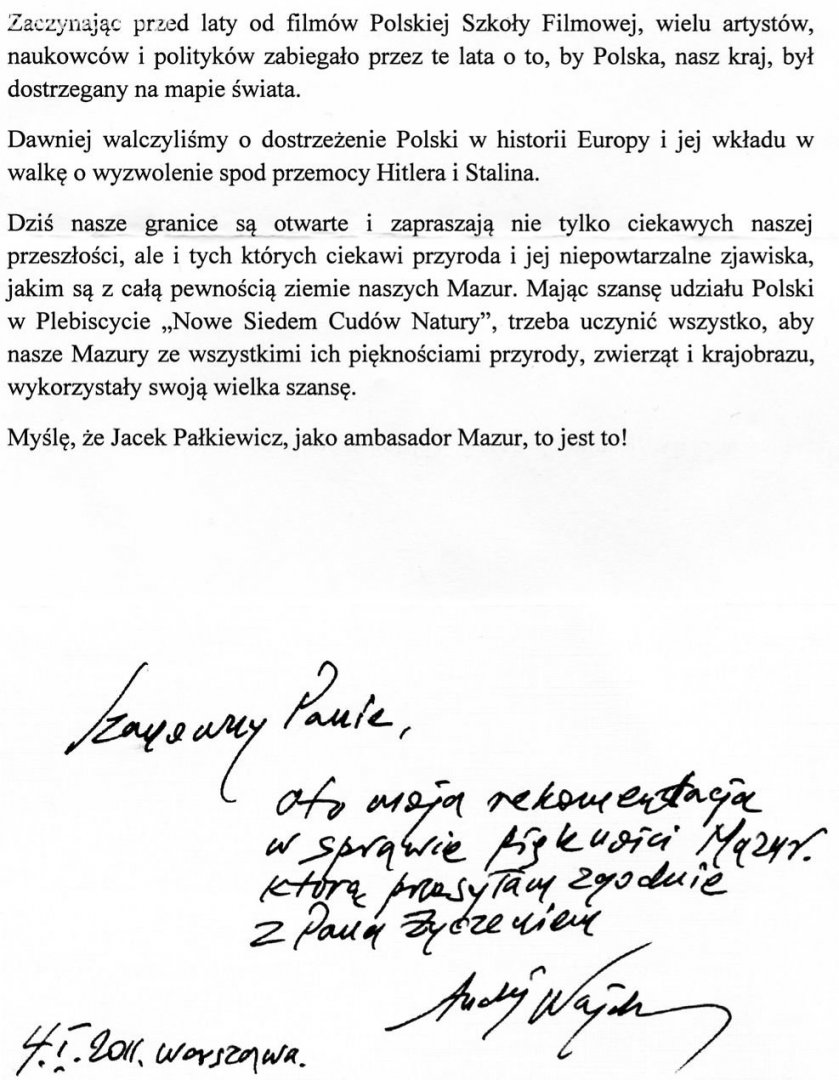 Zaczynając przed laty od filmów Polskiej Szkoły Filmowej, wielu artystów,
naukowców i polityków zabiegało przez te lata o to, by Polska, nasz kraj, był
dostrzegany na mapie świata.
Dawniej walczyliśmy o dostrzeżenie Polski w historii Europy i jej wkładu w
walkę o wyzwolenie spod przemocy Hitlera i Stalina.
Dziś nasze granice są otwarte i zapraszają nie tylko ciekawych naszej
przeszłości, ale i tych których ciekawi przyroda i jej niepowtarzalne zjawiska,
jakim są z całą pewnością ziemie naszych Mazur. Mając szansę udziału Polski
w Plebiscycie „Nowe Siedem Cudów Natury”, trzeba uczynić wszystko, aby
nasze Mazury ze wszystkimi ich pięknościami przyrody, zwierząt i krajobrazu,
wykorzystały swoją wielka szansę.
Myślę, że Jacek Pałkiewicz, jako ambasador Mazur, to jest to!
Szanowny Panie,
oto moja rekomendacja
w sprawie piękności Mazur.
którą przesyłam zgodnie
z Pana życzeniem
Andrzej Wajda
4.I.2011. Warszawa.